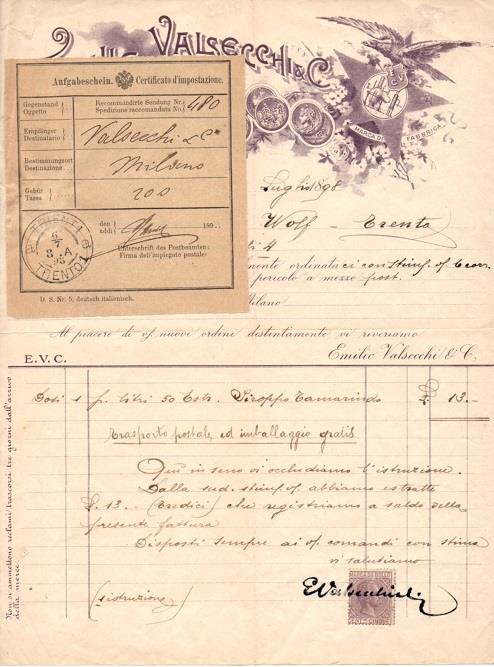 VALSECCHI & C.
MARCA DI FABBRICA
Aufgabeschein. Certificato d'impostazione.
Gegenstand Oggetto
Recommandirte Sendung Nr. Spedizione raccomandata No. 480
Empfänger Destinatario Valsecchi & C°
Bestimmungsort Destinazione Milano
Gebür Tassa 200
TRIENT 1
6/7
98
TRENTO 1
den addì 189
Unterschrift des Postbeamten:
Firma dell'impiegato postale:
D. S. Nr. 5, deutsch italienisch.
Luglio 1898
Wolf - Trento
li 4
ordinataci con stim. of.
pericolo a mezzo post.
Milano
Al piacere di vs. nuovi ordini distintamente vi riveriamo
E.V.C. Emilio Valsecchi & C.
Non si ammettono reclami trascorsi tre giorni dall'arrivo della merce.
1 f. litri 50 Estr. Siroppo Tamarindo £ 13.-
Trasporto postale ed imballaggio gratis
Qui in seno vi accludiamo l'istruzione.
Dalla sud. stim. of. abbiamo estratte
£. 13.- (tredici) che registriamo a saldo della
presente fattura
Disposti sempre ai of. comandi con stima
vi salutiamo
(istruzione)
EValsecchi
MARCA DA BOLLO
CENT. CINQUE